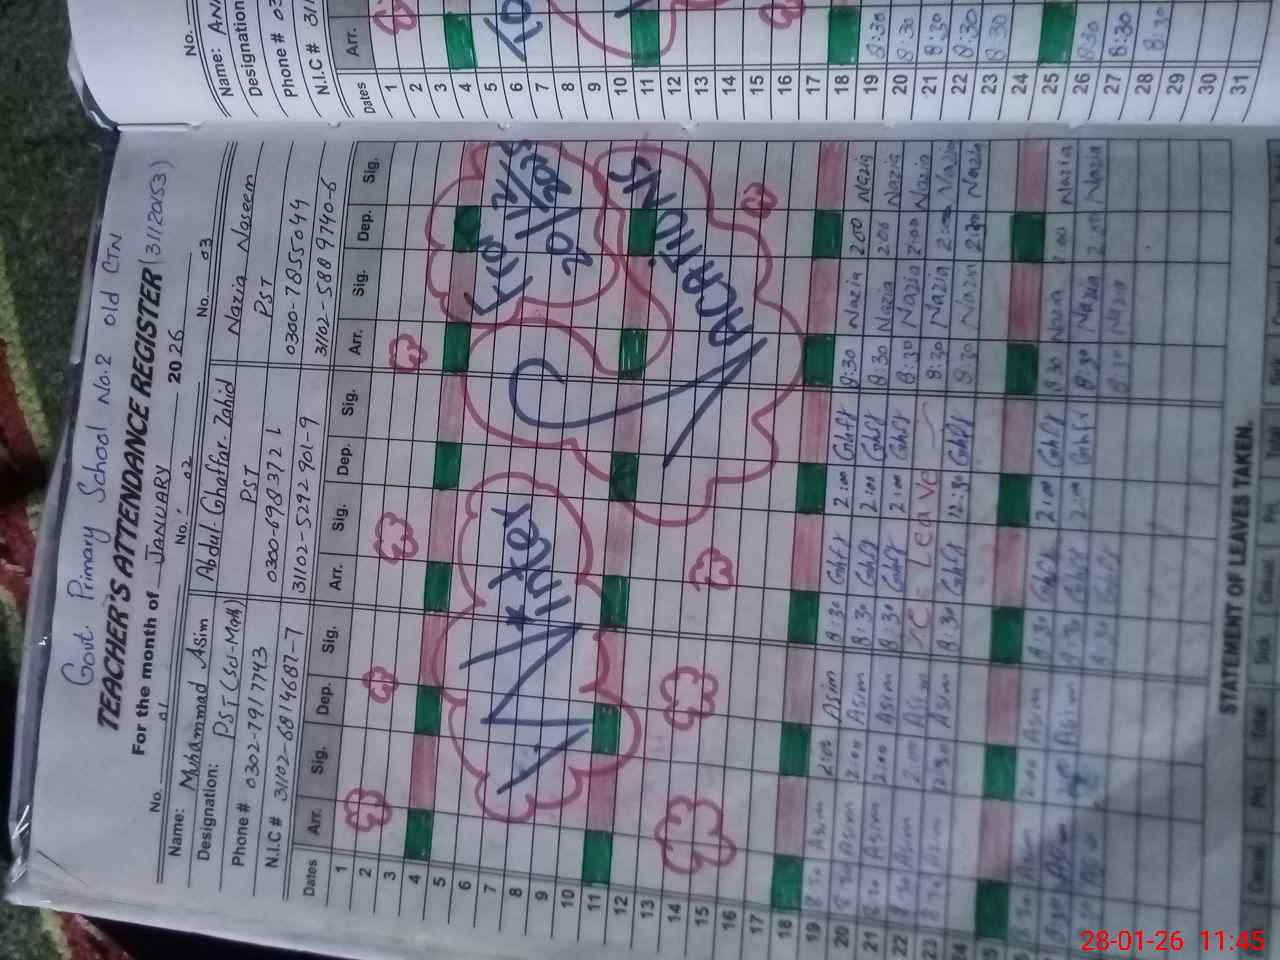 Govt. Primary School No.2 Old CTN
TEACHER'S ATTENDANCE REGISTER (31120153)
For the month of JANUARY 2026
No. 01 No. 02 No. 03
Name: Muhammad Asim Abdul Ghaffar Zahid Nazia Naseem
Designation: PST (Sci-Math) PST PST
Phone # 0302-7917743 0300-698372 0300-7855044
N.I.C # 31102-6814687-7 31102-5292901-9 31102-5889740-6
Dates Arr. Sig. Dep. Sig. Arr. Sig. Dep. Sig. Arr. Sig. Dep. Sig.
1
2
3
4
5
6
7
8
9
10
11
12
13
14
15
16
17
18
Winter VACATIONS
19 Asim 2:00 Asim 8:30 Ghff 2:00 Ghff 8:30 Nazia 2:00 Nazia
20 8:30 Asim 2:00 Asim 8:30 Ghff 2:00 Ghff 8:30 Nazia 2:00 Nazia
21 8:30 Asim 2:00 Asim 8:30 Ghff 2:00 Ghff 8:30 Nazia 2:00 Nazia
22 8:30 Asim 2:00 Asim Leave 8:30 Nazia 2:00 Nazia
23 8:30 Asim Asim 8:30 Ghff 12:30 Ghff 8:30 Nazia Nazia
24
Asim 2:00 Asim 8:30 Ghff 2:00 Ghff 8:30 Nazia 2:00 Nazia
8:30 Asim Asim 8:30 Ghff 2:00 Ghff 8:30 Nazia 2:00 Nazia
8:30 Ghff 8:30 Nazia
STATEMENT OF LEAVES TAKEN.
Casual Prl. Total Sick Casual Prl. Total Sick
No.
Name:
Designation
Phone # 03
N.I.C # 31
Dates Arr.
1
2
3
4
5
6
7
8
9
10
11
12
13
14
15
16
17
18
19 8:30
20 8:30
21 8:30
22 8:30
23 8:30
24
25
26 8:30
27 8:30
28 8:30
29
30
31
28-01-26 11:45